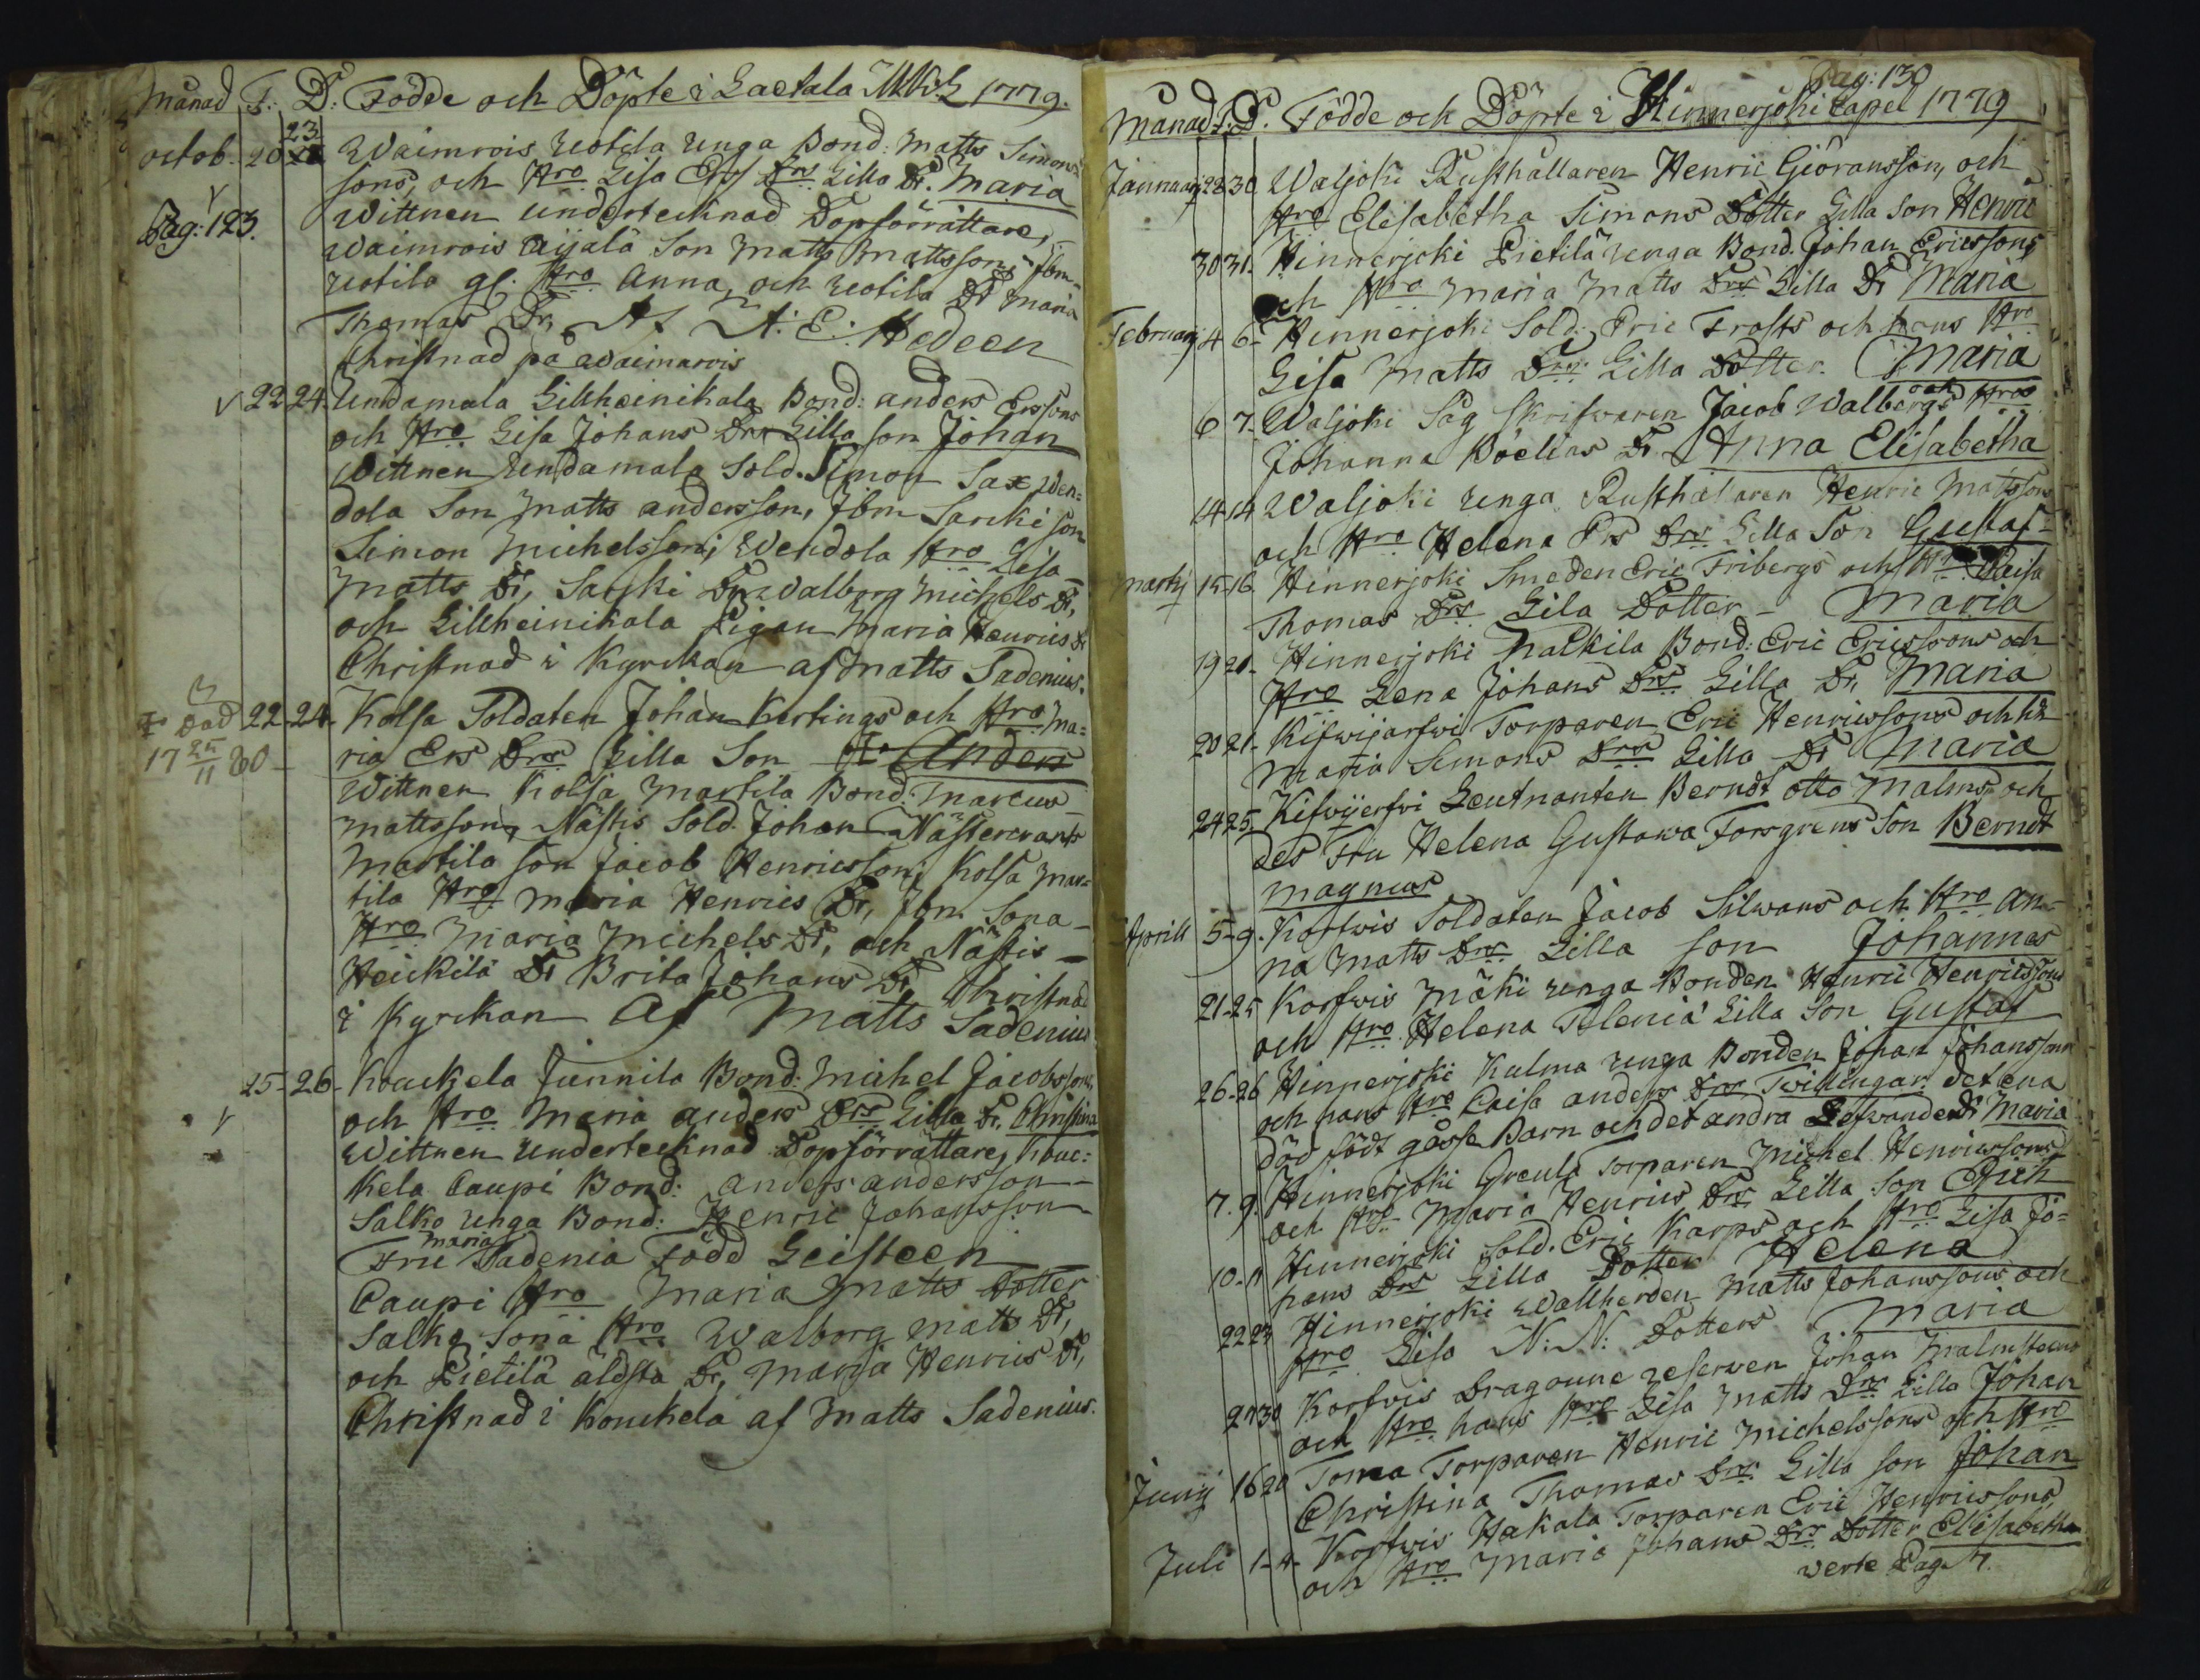 Månad F. D: Födde och Döpte i Laetala 1779.
octob. 20 23 Waimrois uotila unga Bond: Matts Simons
sons, och Hro Lisa Ers Drs Lilla Dr. Maria
Pag: 123. Wittnen undertecknad Dopförrättare,
Waimrois Aijalä Son Matts Mattsson, Jbm
uotila gl. Hro Anna, och uotila Dr Maria
Thomas Dr, Af A: E: Hedeen
Christnad på Waimarois
22 24. Undamala Lillheinikala Bond: anders Erssons
och Hro Lisa Johans Drs Lilla son Johan
Wittnen Undamala Sold. Simon Sax Wen=
dola Son Matts andersson, Jbm Sarcki son
Simon Michelsson; Wendola Hro Lisa
Matts Dr, Sarcki Dr Walborg Michels Dr,
och Lillheinikala Pigan Maria Henrics Dr
Christnad i Kyrckan af Matts Sadenius.
✝ Död 22-24- Kolsa Soldaten Johan Kertings och Hro Ma=
17 25/11 80 ria Ers Drs Lilla Son ✝ Anders
Wittnen Kolsa Martila Bond: Marcus
Mattsson, Nästis Sold. Johan Nästercrants
Martila son Jacob Henricsson; Kolsa Mar=
tila Hro Maria Henrics Dr, Jbm Sona
Hro Maria Michels Dr, och Nästis
Heickilä Dr Brita Johans Dr, Christnad
i Kyrckan Af Matts Sadenius
25-26- Kouckela Junnila Bond: Michel Jacobssons,
och Hro Maria anders Drs Lilla Dr. Christina
Wittnen undertecknad Dopförrättare, Kouc:
kela Caupi Bond: anders andersson
Salko unga Bond: Henric Johansson
Fru Maria Sadenia Född Geisteen
Caupi Hro Maria Matts Dotter
Salko Sona Hro Walborg Matts Dr,
och Pietilä äldsta Dr, Maria Henrics Dr,
Christnad i Kouckela af Matts Sadenius.
Pag: 130
Månad F. D. Födde och Döpte i Hinnerjoki Capel 1779
Januarij 28 30 Waljoki Rusthållaren Henric Giöransson, och
Hro Elisabetha Simons Dotter Lilla Son Henric
30 31- Hinnerjoki Pietilä unga Bond. Johan Ericssons
och Hro Maria Matts Drs Lilla Dr Maria
Februarij 4 6- Hinnerjoki Sold. Eric Frosts och hans Hro
Lisa Matts Drs Lilla Dotter. Maria
6 7- Waljoki Såg Skrifwaren Jacob Walbergs och Hros
Johanna Böelias Dr. Anna Elisabetha
14 14 Waljoki unga Rusthållaren Henric Matssons
och Hro Helena Ers Drs Lilla Son Gustaf-
Martij 15-16 Hinnerjoki Smeden Eric Fribergs och Hro Caisa
Thomas Drs Lila Dotter - Maria
19 21- Hinnerjoki Nalkila Bond: Eric Ericssons och
Hro Lena Johans Drs Lilla Dr, Maria
20 21- Kifwijärfwi Torparen Eric Henricssons och
Maria Simons Drs Lilla Dr Maria
24 25 Kifwijerfwi Leutnanten Berndt Otto Malms, och
des Fru Helena Gustawa Forsgrens Son Berndt
Magnus
Aprill 5-9. Korfwis Soldaten Jacob Silwans och Hro An-
na Matts Drs Lilla son Johannes
21-25 Korfwis Mäki unga Bonden Henric Henricssons
och Hro Helena Polenia Lilla Son Gustaf
26-26 Hinnerjoki Kulma unga Bonden Johan Johanssons
och hans Hro Caisa anders Drs Twillingar. det ena
död födt gosse Barn och det andra Lefwande Dr Maria
7. 9. Hinnerjoki Greula Torparen Michel Henricssons
och Hro Maria Henrics Drs Lilla Son Erich
10-11 Hinnerjoki Sold. Eric Karps och Hro Lisa Jo=
hans Drs Lilla Dotter Helena
22 23 Hinnerjoki Wallherden Matts Johanssons och
Hro Lisa N: N: Dotters Maria
27 30 Korfwis Dragoune reserven Johan Malmsteens
och Hro hans Hro Lisa Matts Drs Lilla Johan
Junij 16 20 Torparen Henric Michelssons och Hro
Christina Thomas Drs Lilla son Johan
Juli 1-4- Korfwis Hakala Torparen Eric Henricssons,
och Hro Maria Johans Drs Dotter Elisabetha
verte Pag.